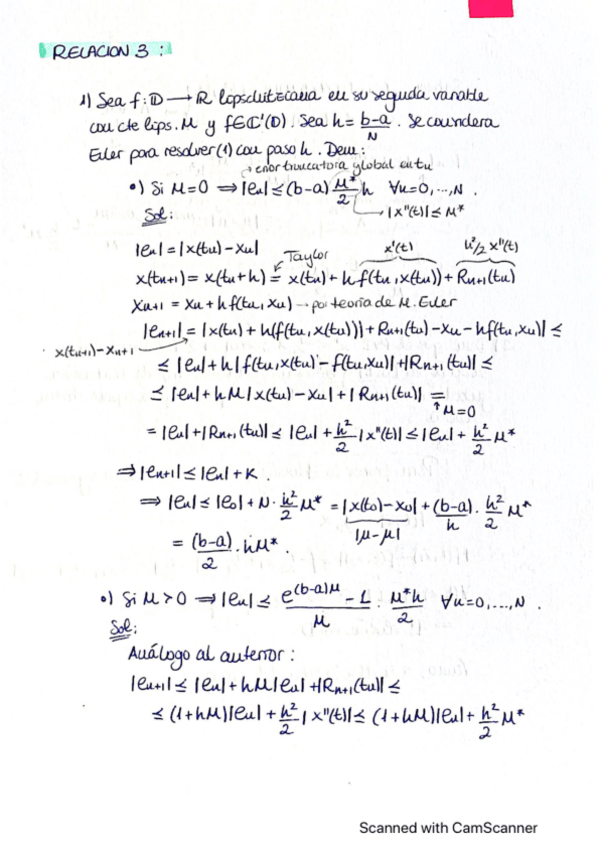 RELACION 3 :
1) Sea f: D → R lopschitzcaua en su segunda variable
con cte lips. M y f∈C'(D). Sea h = b-a/N . Se considera
Euler para resolver (1) con paso h. Dem:
→ error truncatora global en tn
•) Si M=0 ⇒ |en| ≤ (b-a) M*/2 h ∀n=0,...,N
Sol:
→ |x''(t)| ≤ M*
|en| = |x(tn) - xn|
Taylor x'(t) h²/2 x''(t)
x(tn+1) = x(tn+h) = x(tn) + h f(tn, x(tn)) + Rn+1(tn)
xn+1 = xn + h f(tn, xn) → por teoría de M. Euler
|en+1| = |x(tn) + h(f(tn, x(tn))) + Rn+1(tn) - xn - hf(tn, xn)| ≤
x(tn+1) - xn+1
≤ |en| + h |f(tn, x(tn) - f(tn, xn)| + |Rn+1(tn)| ≤
≤ |en| + h M |x(tn) - xn| + |Rn+1(tn)| =
↑ M=0
= |en| + |Rn+1(tn)| ≤ |en| + h²/2 |x''(t)| ≤ |en| + h²/2 M*
⇒ |en+1| ≤ |en| + K .
⇒ |en| ≤ |e0| + N · h²/2 M* = |x(t0) - x0| + (b-a)/h · h²/2 M*
|μ - μ|
= (b-a)/2 · hM* .
•) Si M > 0 ⇒ |en| ≤ e^(b-a)M - 1/M · M*h/2 ∀n=0,...,N .
Sol:
Análogo al anterior :
|en+1| ≤ |en| + hM|en| + |Rn+1(tn)| ≤
≤ (1+hM)|en| + h²/2 |x''(t)| ≤ (1+hM)|en| + h²/2 M*
Scanned with CamScanner